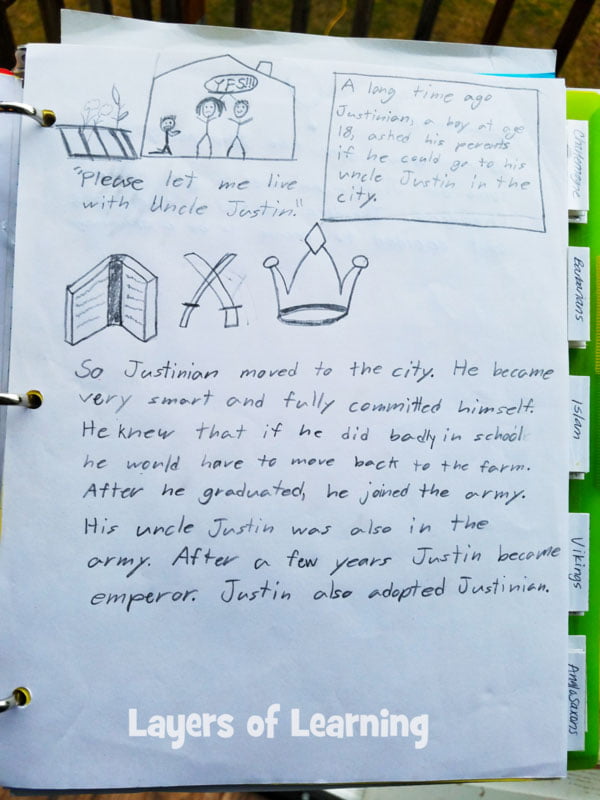 YES!!!
"Please let me live
with Uncle Justin."
A long time ago
Justinian, a boy at age
18, asked his perents
if he could go to his
uncle Justin in the
city.
So Justinian moved to the city. He became
very smart and fully committed himself.
He knew that if he did badly in school
he would have to move back to the farm.
After he graduated, he joined the army.
His uncle Justin was also in the
army. After a few years Justin became
emperor. Justin also adopted Justinian.
Charlemagne
Barbarians
Islam
Vikings
Anglo Saxons
Layers of Learning